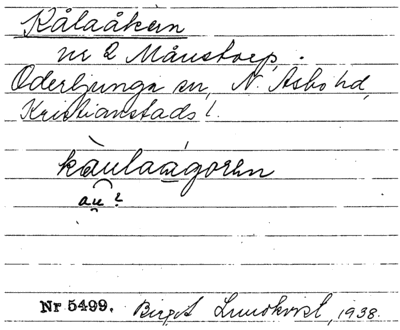 Kålaåkern
nr 2 Månstorp.
Oderljunga sn, N. Åsbo hd,
Kristianstads l.
kàulaágoren
au?
Nr 5499. Birgit Lundkvist, 1938.